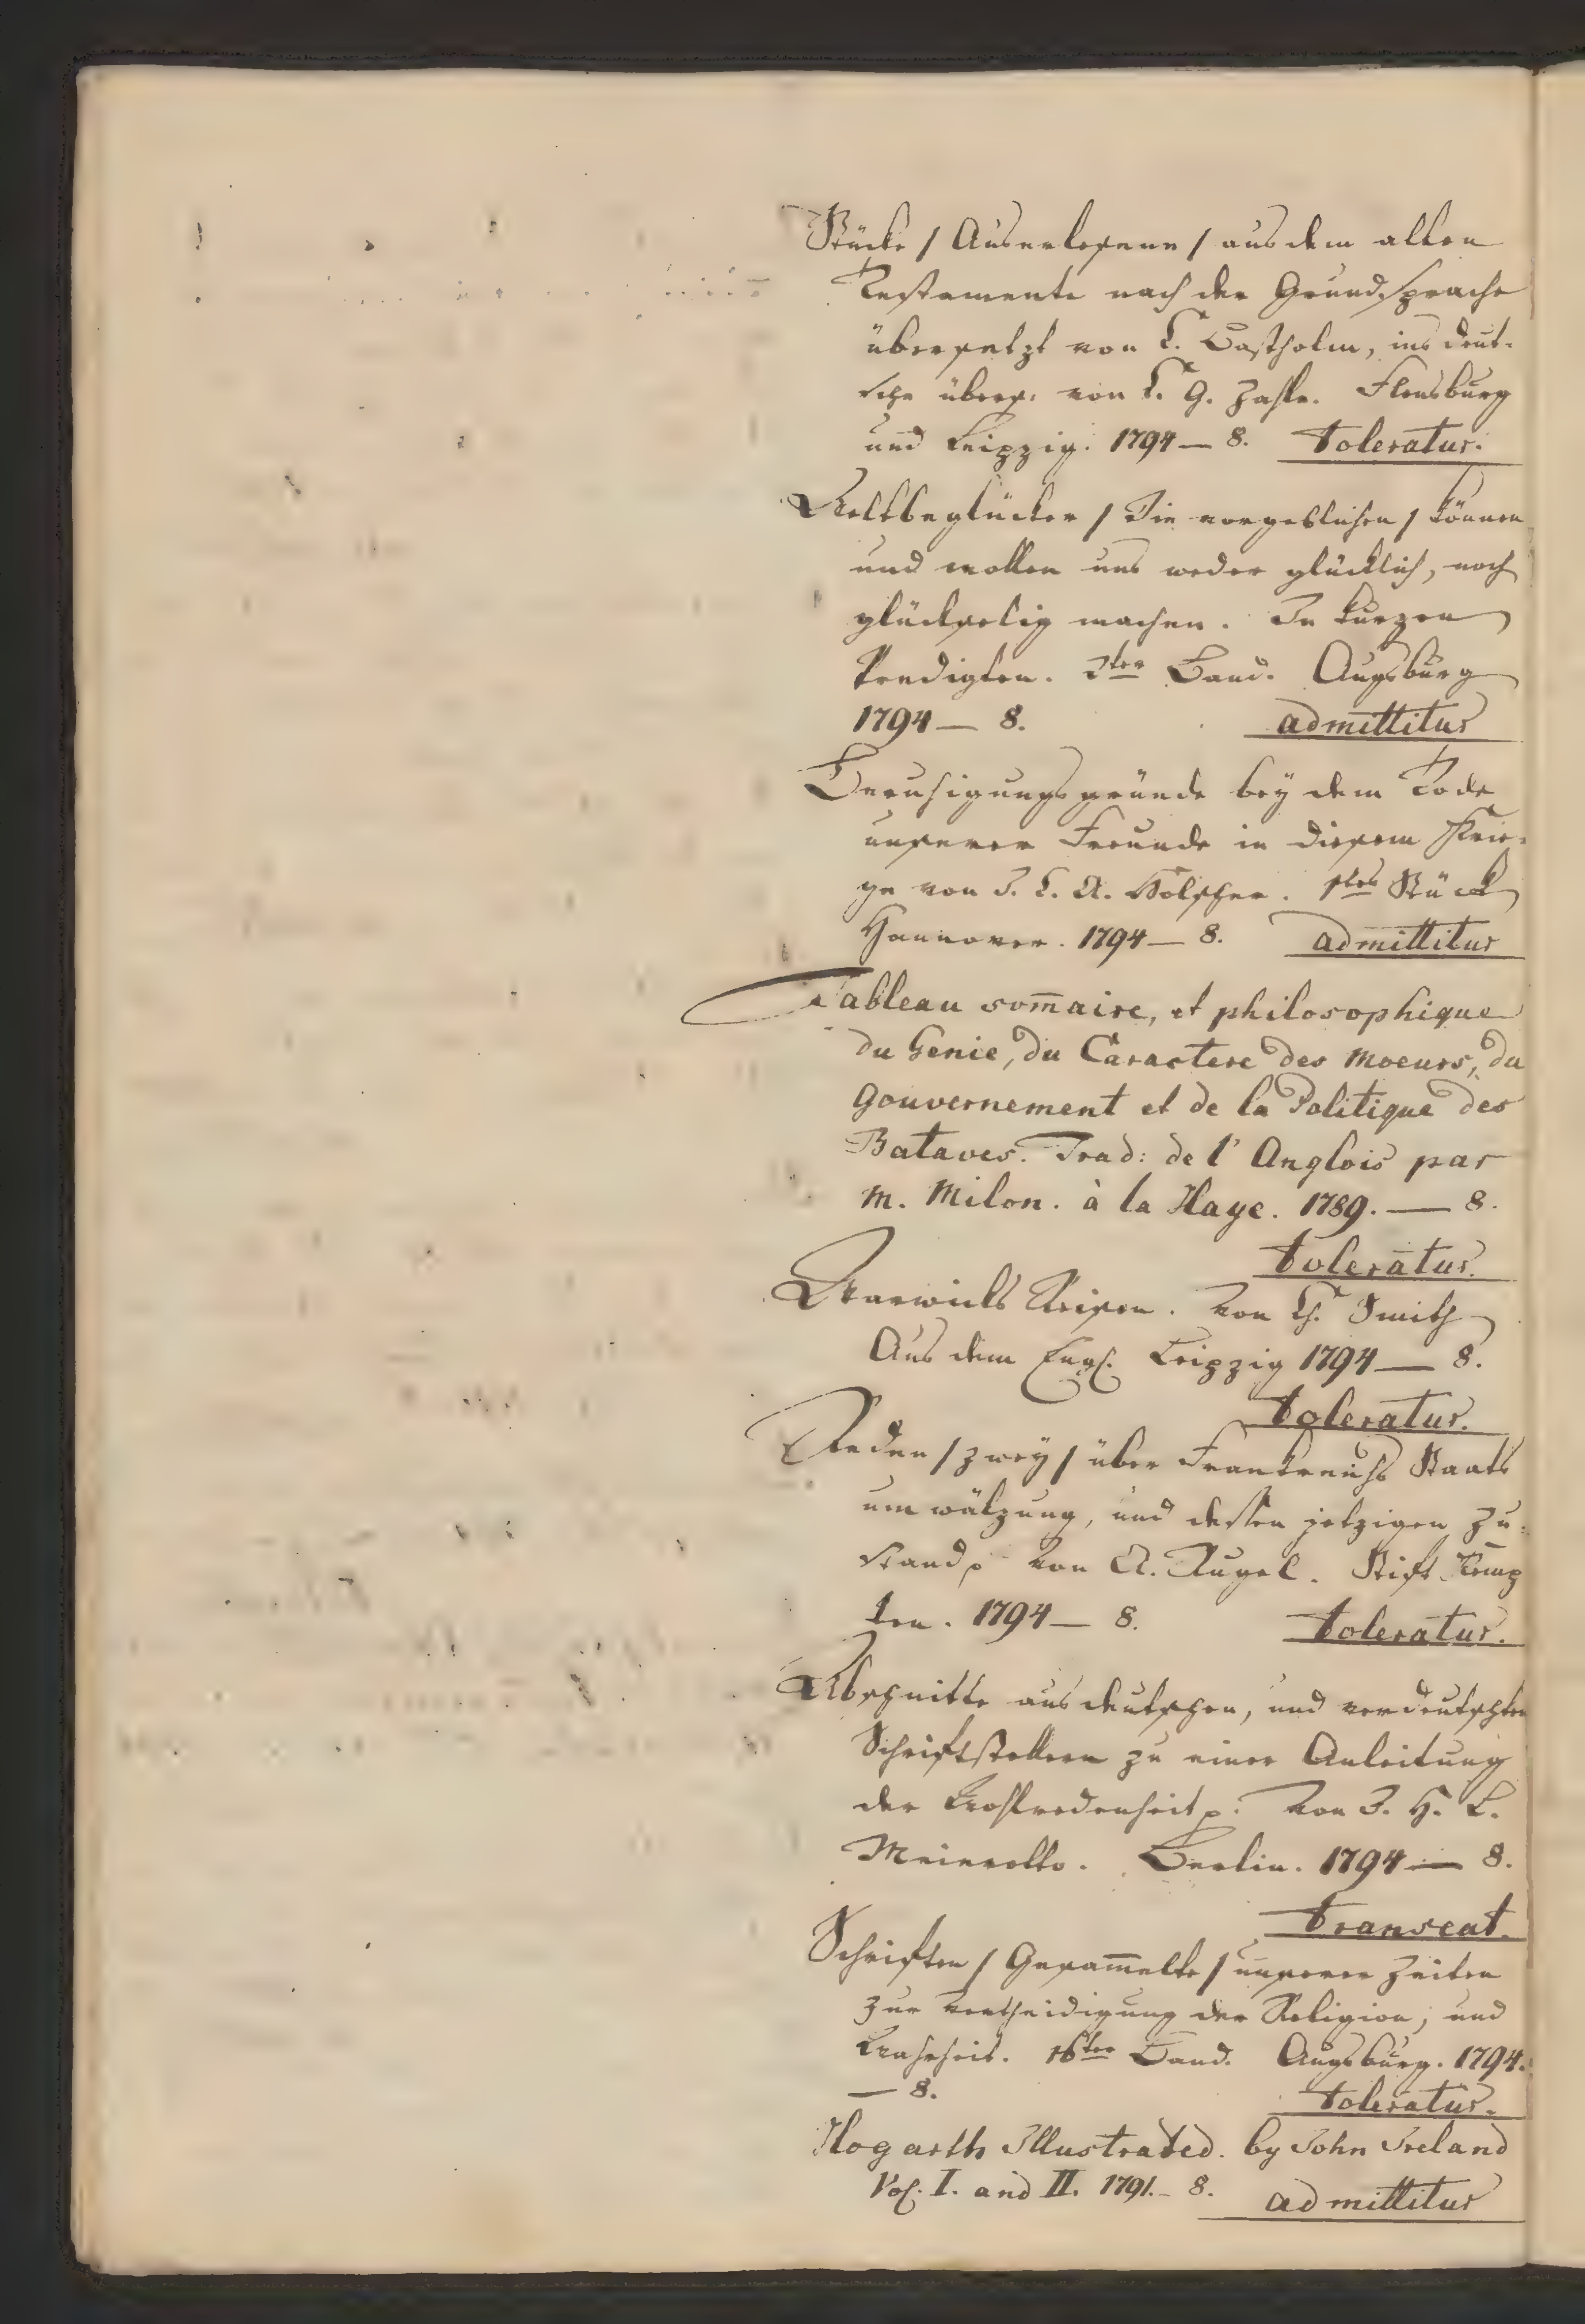 Stücke / Auserlesene / aus dem alten
Testamente nach der Grundsprache
übersetzt von C. Bastholm, ins deut-
sche übers. von C. G. Zahle. Flensburg
und Leipzig. 1794 — 8. toleratur.
Weltbeglücker / Die vorgeblichen / können
und wollen uns weder glücklich, noch
glückselig machen. In kurzen
Predigten. 3ter Band. Augsburg
1794 — 8. admittitur
Beruhigungsgründe bey dem Tode
unserer Freunde in diesem Krie-
ge von J. C. A. Hölscher. 1tes Stück
Hannover. 1794 — 8. admittitur
Tableau som̄aire, et philosophique
du Genie, du Caractere des Moeurs, du
Gouvernement et de la Politique des
Bataves. Trad: de l'Anglois par
M. Milon. à la Haye. 1789. — 8.
toleratur.
Warwicks Reisen. Von Ch. Smith
Aus dem Engl. Leipzig 1794 — 8.
toleratur.
Reden / zwey / über Frankreichs Staats
umwälzung, und dessen jetzigen Zu-
stand. Von A. Rugel. Stift Kemp
ten. 1794 — 8. toleratur.
Abschnitte aus deutschen, und verdeutschten
Schriftstellern zu einer Anleitung
der Wohlredenheit p. Von J. H. L.
Meierotto. Berlin. 1794 — 8.
transeat.
Schriften / Gesam̄elte / unserer Zeiten
zur Vertheidigung der Religion, und
Wahrheit. 16ter Band. Augsburg. 1794.
— 8. toleratur.
Hogarth Illustrated. by John Ireland
Vol. I. and II. 1791. — 8. admittitur